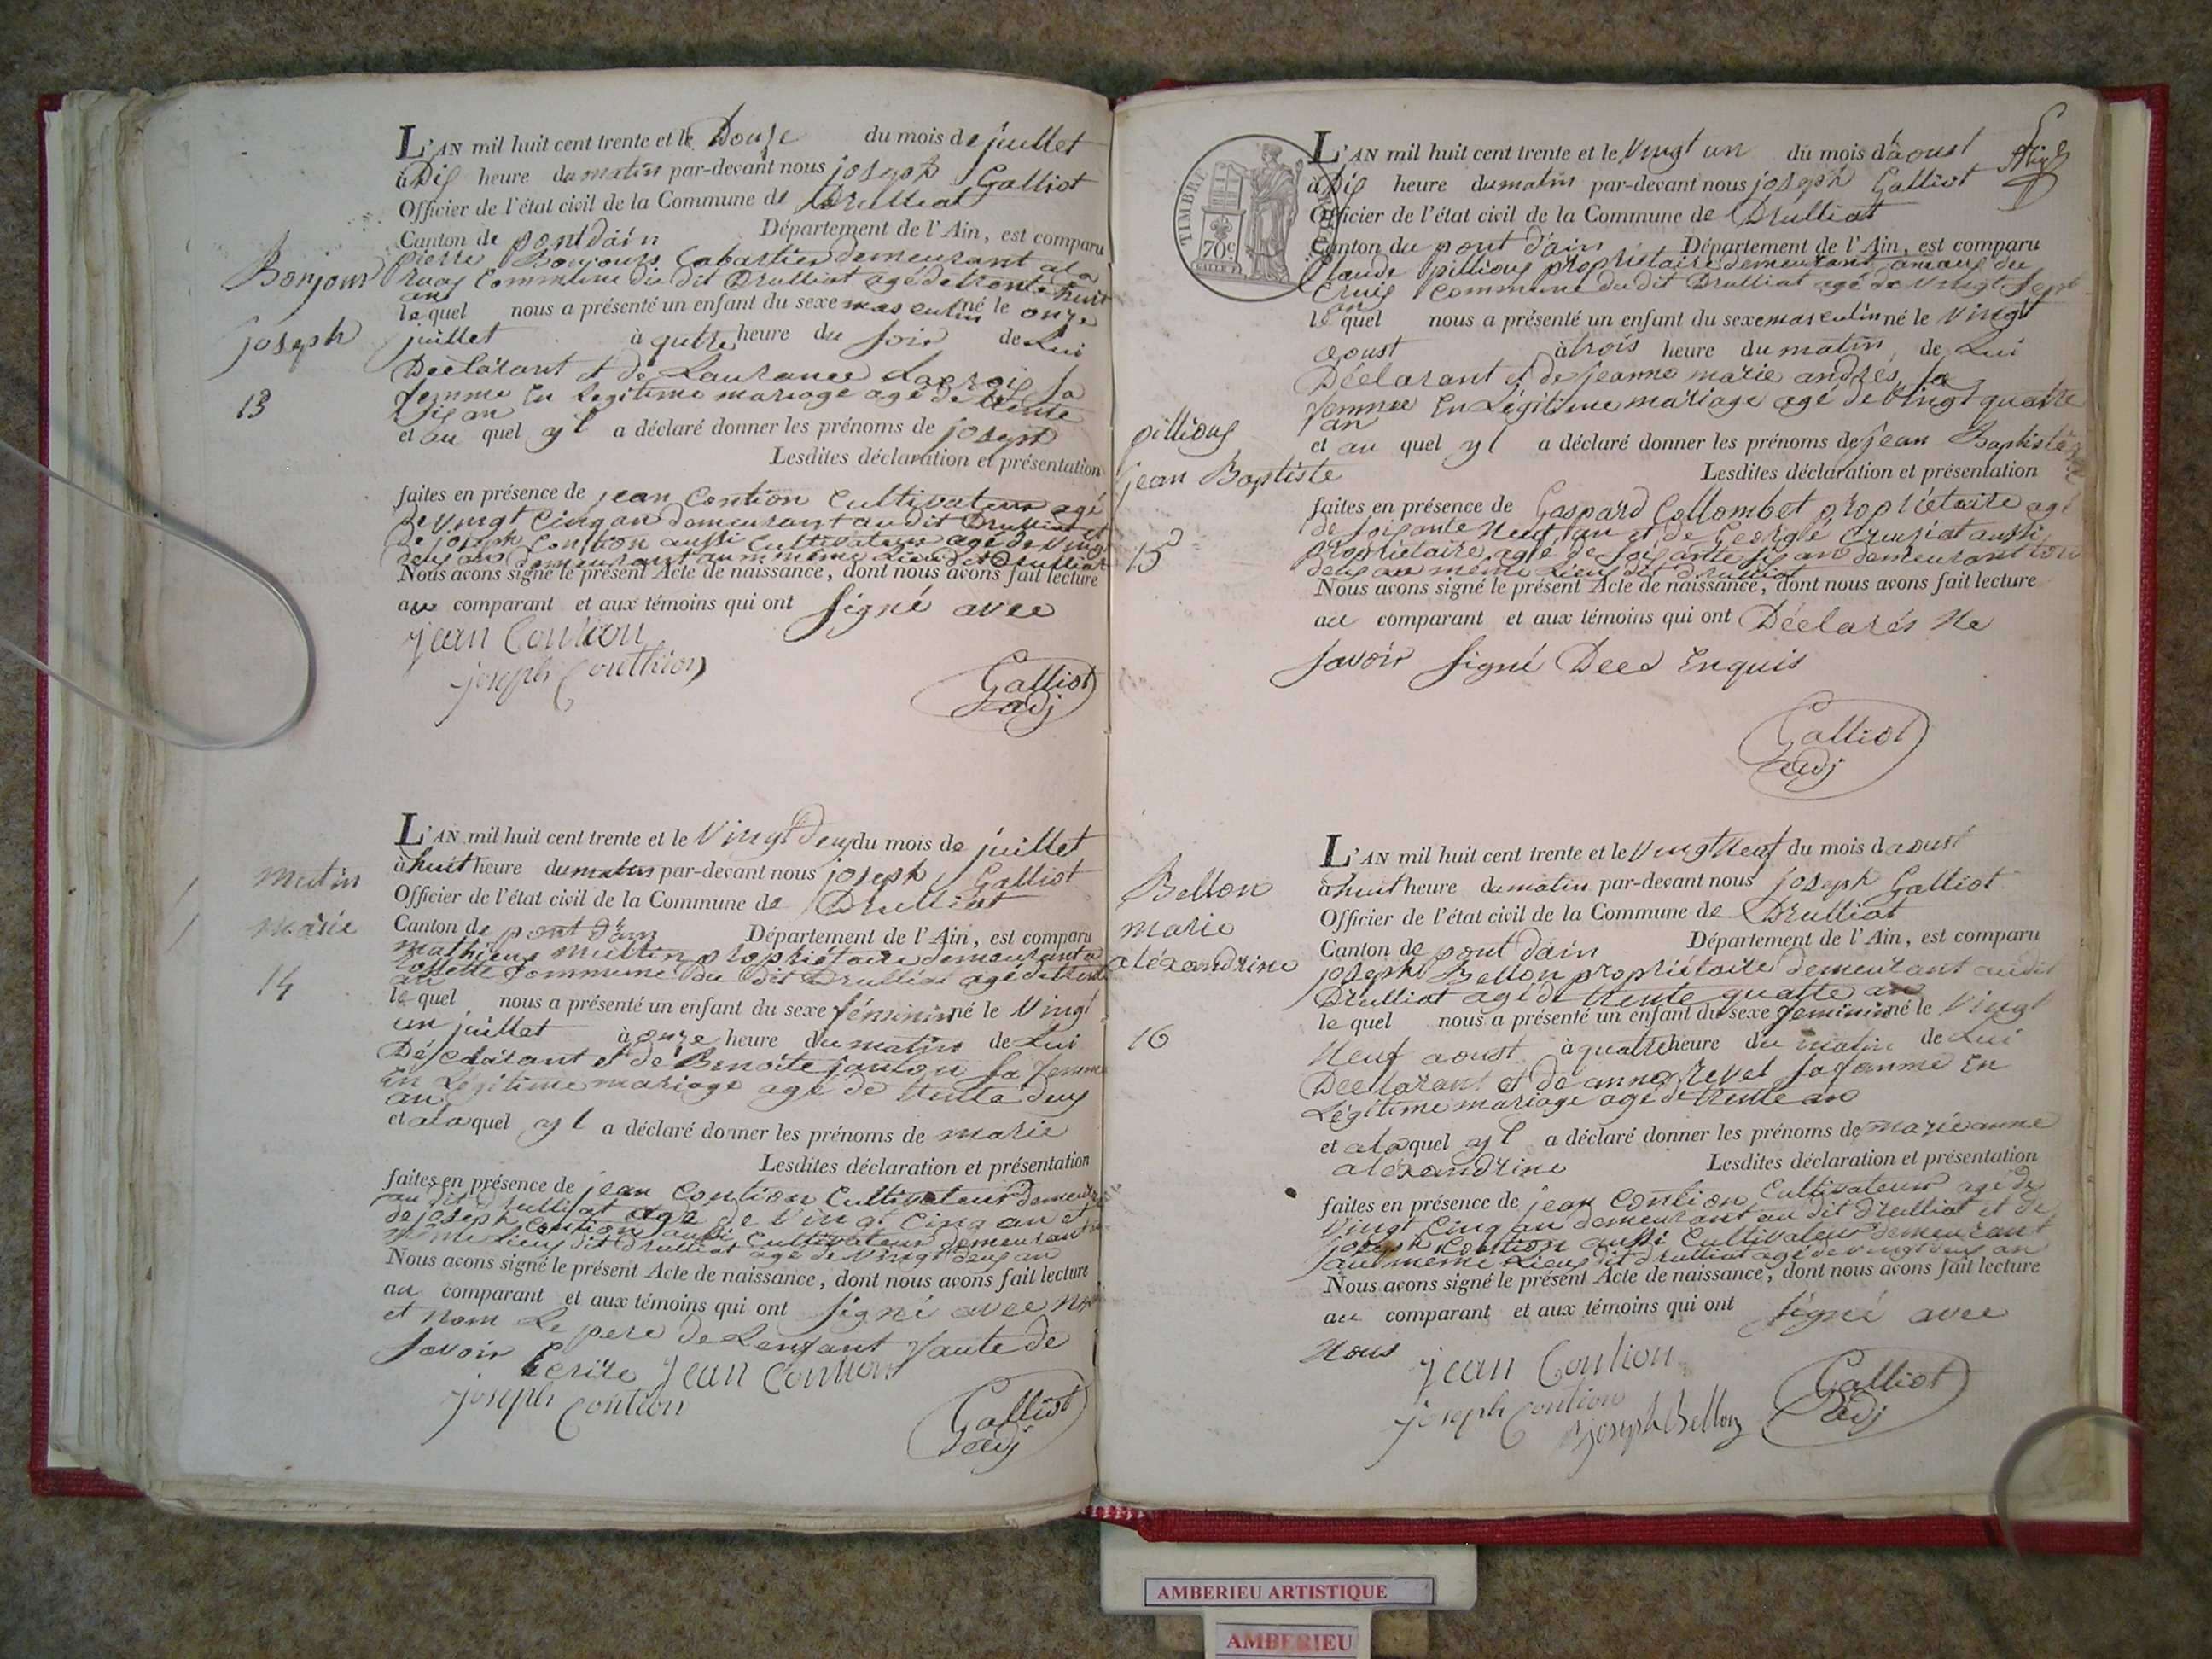 L'AN mil huit cent trente et le Douze du mois de juillet
à Dix heure du matin par-devant nous joseph Galliot
Officier de l'état civil de la Commune de Drulliat
Canton de pont dain Département de l'Ain, est comparu
pierre Bonjours Cabartier demeurant a la
Commune du dit Drulliat agé de trente huit
an
le quel nous a présenté un enfant du sexe masculin né le onze
juillet à qutre heure du soir de Lui
Déclarant et de Laurance Lacroix sa
femme En legitime mariage agé de trente
Six an
et au quel yl a déclaré donner les prénoms de joseph
Lesdites déclaration et présentation
faites en présence de jean Contion Cultivateur agé
de vingt Cinq an demeurant au dit Drulliat et
de joseph Contion aussi Cultivateur agé de vingt
deux an demeurant au même Lieu dit Drulliat
Nous avons signé le présent Acte de naissance, dont nous avons fait lecture
au comparant et aux témoins qui ont signé avec
jean Contion
joseph Conthion
Galliot
adj
Bonjour
joseph
13
L'AN mil huit cent trente et le Vingt deux du mois de juillet
à huit heure du matin par-devant nous joseph Galliot
Officier de l'état civil de la Commune de Drulliat
Canton de pont d'ain Département de l'Ain, est comparu
mathieux propriétaire demeurant a
Commune du dit Drulliat agé de trente
an
le quel nous a présenté un enfant du sexe féminin né le Vingt
un juillet à onze heure du matin de Lui
Déclarant et de Benoite janton sa femme
En Legitime mariage agé de trente deux
an
et a la quel yl a déclaré donner les prénoms de marie
Lesdites déclaration et présentation
faites en présence de jean Contion Cultivateur demeurant
au dit Drulliat agé de Vingt Cinq an et
de joseph Contion aussi Cultivateur demeurant au
même Lieux dit Drulliat agé de Vingt deux an
Nous avons signé le présent Acte de naissance, dont nous avons fait lecture
au comparant et aux témoins qui ont signé avec nous
et nom Le pere de Lenfant faute de
savoir Ecrire jean Contion
joseph Contion
Galliot
adj
marie
14
TIMBRE
70c
L'AN mil huit cent trente et le Vingt un du mois d'aoust
à Dix heure du matin par-devant nous joseph Galliot
Officier de l'état civil de la Commune de Drulliat
Canton du pont d'ain Département de l'Ain, est comparu
Claude pillioux propriétaire demeurant
Commune du dit Drulliat agé de Vingt Sept
an
le quel nous a présenté un enfant du sexe masculin né le Vingt
aoust à trois heure du matin, de Lui
Déclarant et de jeanne marie andrés sa
femmee En Légitime mariage agé de Vingt quatre
an
et au quel yl a déclaré donner les prénoms de jean Baptiste
Lesdites déclaration et présentation
faites en présence de Gaspard Collombet propriétaire agé
de soixante Neuf an et de George Cruziat aussi
propriétaire agé de soixante six an demeurant tous
deux au même Lieux dit Drulliat
Nous avons signé le présent Acte de naissance, dont nous avons fait lecture
au comparant et aux témoins qui ont Déclarés Ne
savoir signé Dees Enquis
Galliot
adj
pillioux
jean Baptiste
15
L'AN mil huit cent trente et le Vingt Neuf du mois d aoust
à huit heure du matin par-devant nous joseph Galliot
Officier de l'état civil de la Commune de Drulliat
Canton de pont dain Département de l'Ain, est comparu
joseph Bellon propriétaire demeurant audit
Drulliat agé de trente quatre an
le quel nous a présenté un enfant du sexe feminin né le Vingt
Neuf aoust à quatre heure du matin de Lui
Declarant et de anne revel sa famme En
Légitime mariage agé de trente an
et a la quel yl a déclaré donner les prénoms de marie anne
aléxandrine Lesdites déclaration et présentation
faites en présence de jean Contion Cultivateur agé de
Vingt Cinq an demeurant au dit Drulliat et de
joseph Contion aussi Cultivateur demeurant
au même Lieux dit drulliat agé de vingt deux an
Nous avons signé le présent Acte de naissance, dont nous avons fait lecture
au comparant et aux témoins qui ont signé avec
Nous jean Contion
joseph Contion
joseph Bellon
Galliot
adj
Bellon
marie
aléxandrine
16
AMBERIEU ARTISTIQUE
AMBERIEU